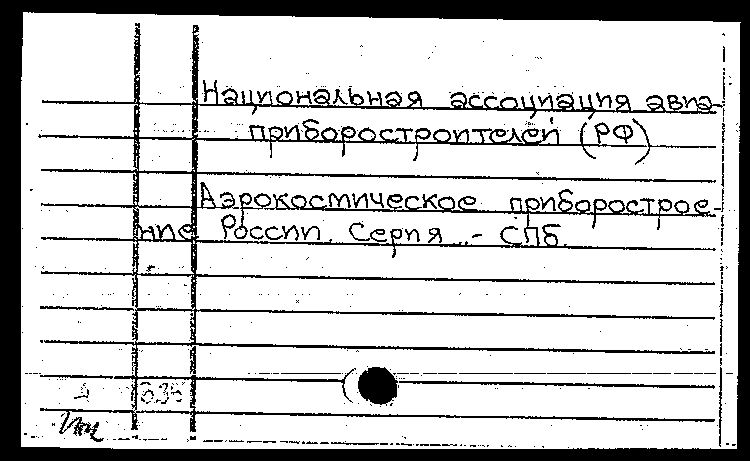 Национальная ассоциация авиа-
приборостроителей (РФ)
Аэрокосмическое приборострое-
ние России. Серия .- СПб.